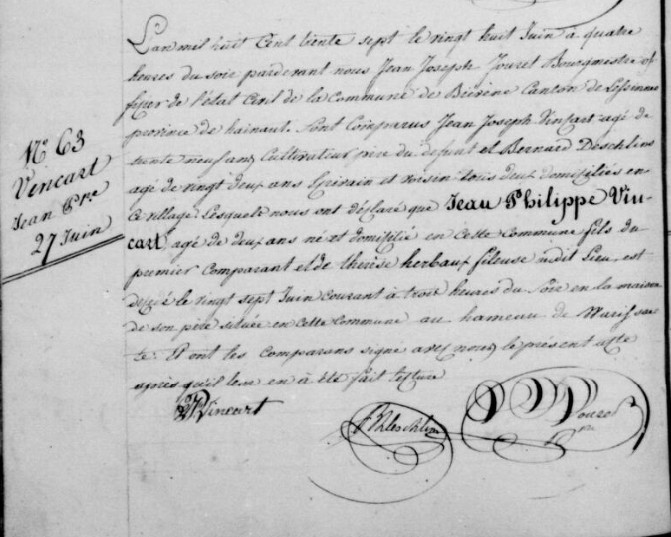 N° 63
Vincart
Jean Pre
27 Juin
L'an mil huit Cent trente sept le vingt huit Juin à quatre
heures du soir pardevant nous Jean Joseph Jouret Bourgmestre of
ficier de l'état Civil de la Commune de Canton de Lessinnes
province de hainaut. Sont Comparus Jean Joseph Vincart agé de
trente neuf ans Cultivateur père du defunt et Bernard Deschlins
agé de vingt deux ans Ecrivain et voisin tous deux domiciliés en
Ce village Lesquels nous ont déclaré que Jean Philippe Vin-
cart, agé de deux ans né et domicilié en Cette Commune fils du
premier Comparant et de thérèse herbaux fileuse audit Lieu, est
décédé le vingt sept Juin Courant à trois heures du Soir en la maison
de son père située en Cette Commune au hameau de
te. Et ont les Comparans signé avec nous le présent acte
après qu'il leur en à été fait lecture
Vincart
Jouret